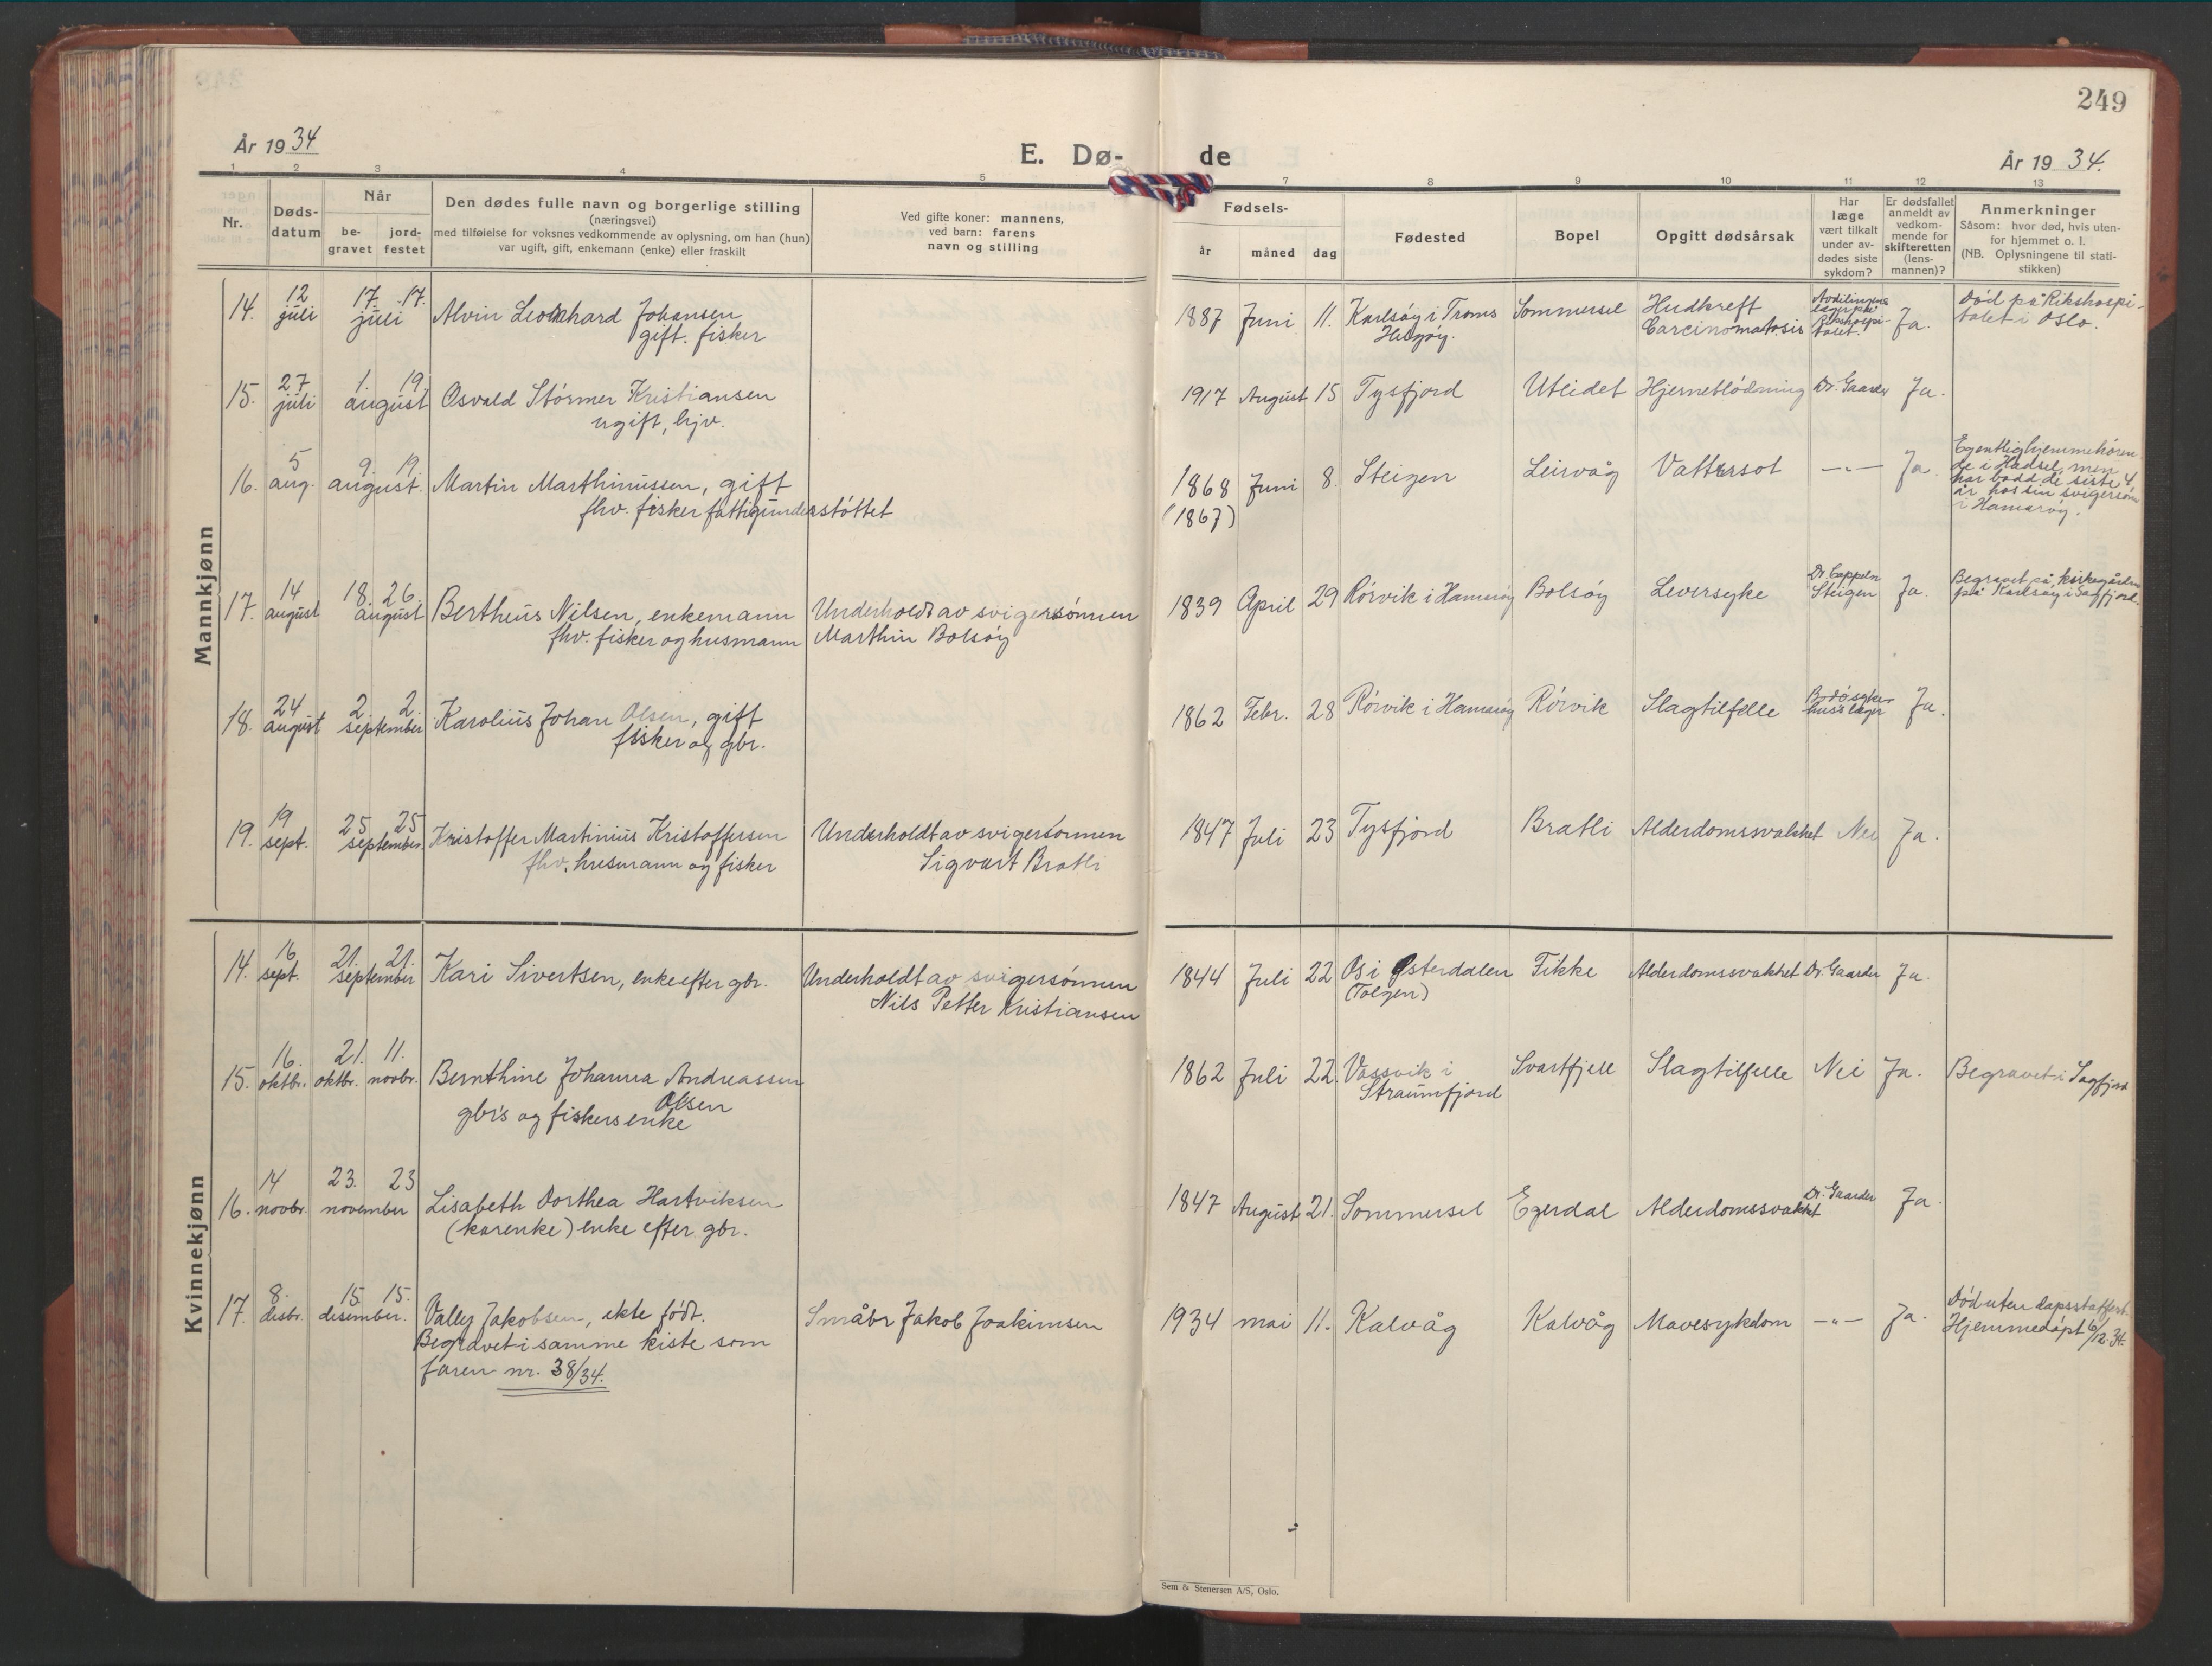 249
År 1934
E. Dø-
de
År 1934.
1 2 3 4 5 7 8 9 10 11 12 13
Nr.
Døds-
datum
Når
be-
gravet
jord-
festet
Den dødes fulle navn og borgerlige stilling
(næringsvei)
med tilføielse for voksnes vedkommende av oplysning, om han (hun)
var ugift, gift, enkemann (enke) eller fraskilt
Ved gifte koner: mannens,
ved barn: farens
navn og stilling
Fødsels-
år
måned
dag
Fødested
Bopel
Opgitt dødsårsak
Har
læge
vært tilkalt
under av-
dødes siste
sykdom?
Er dødsfallet
anmeldt av
vedkom-
mende for
skifteretten
(lens-
mannen)?
Anmerkninger
Såsom: hvor død, hvis uten-
for hjemmet o. l.
(NB. Oplysningene til stati-
stikken)
Mankjønn
14. 12 juli 17. 17. juli Alvin Leonhard Johansen
gift. fisker
1887 Juni 11. Karlsøy i Troms
Helgøy.
Sommersel
Hudkreft
Carcinomatosis
Avdelingens
læger på
Rikshospi-
talet.
Ja.
Død på Rikshospi-
talet i Oslo.
15. 27 juli 1. 19. august Osvald Størmer Kristiansen
ugift, hjv.
1917 August 15 Tysfjord Utleidet Hjerneblødning Dr. Gaarder Ja.
16. 5 aug. 9. 19. august. Martin Marthinussen, gift
fhv. fisker fattigunderstøttet
1868 Juni 8. Steigen Leirvåg Vattersot —„— Ja.
(1867)
Egentlig hjemmehøren-
de i Hadsel, men
har bodd de siste 4
år hos sin svigersønn
i Hamarøy.
17. 14 august 18. 26. august Bertheus Nilsen, enkemann
fhv. fisker og husmann
Underholdt av svigersønnen
Marthin Bolsøy
1839 April 29 Rørvik i Hamarøy Bolsøy Leversyke
Dr. Cappeln
Steigen
Ja.
Begravet på kirkegården
på Karlsøy i Sagfjord.
18. 24 august 2. 2. september Karolius Johan Olsen, gift
fisker og gbr.
1862 Febr. 28 Rørvik i Hamarøy Rørvik Slagtilfelle
Bodø syke-
huss læger
Ja.
19. 19 sept. 25 25 september. Kristoffer Martinius Kristoffersen
fhv. husmann og fisker
Underholdt av svigersønnen
Sigvart Bratli
1847 Juli 23 Tysfjord Bratli Alderdomssvakhet Nei Ja.
Kvinnekjønn
14. 16 sept. 21. 21. september Kari Sivertsen, enke efter gbr.
Underholdt av svigersønnen
Nils Petter Kristiansen
1844 Juli 22 Os i Østerdalen
(Tolgen)
Fikke Alderdomssvakhet Dr. Gaarder Ja.
15. 16. oktbr. 21. oktbr. 11. novbr. Bernthine Johanna Andreassen
Olsen
gbr's og fiskers enke
1862 Juli 22. Vassvik i
Straumfjord
Svartfjell Slagtilfelle Nei Ja. Begravet i Sagfjord
16. 14 novbr. 23. 23 november Lisabeth Dorthea Hartviksen
(kårenke) enke efter gbr.
1847 August 21. Sommersel Egerdal Alderdomssvakhet Dr. Gaarder Ja.
17. 8. desbr. 15 15. desember. Valley Jakobsen, ekte født.
Begravet i samme kiste som
faren nr. 38/34.
Småbr Jakob Joakimsen
1934 mai 11. Kalvåg Kalvåg Mavesykdom —„— Ja.
Død uten dapsattest.
Hjemmedøpt 6/12 34.
Sem & Stenersen A/S, Oslo.